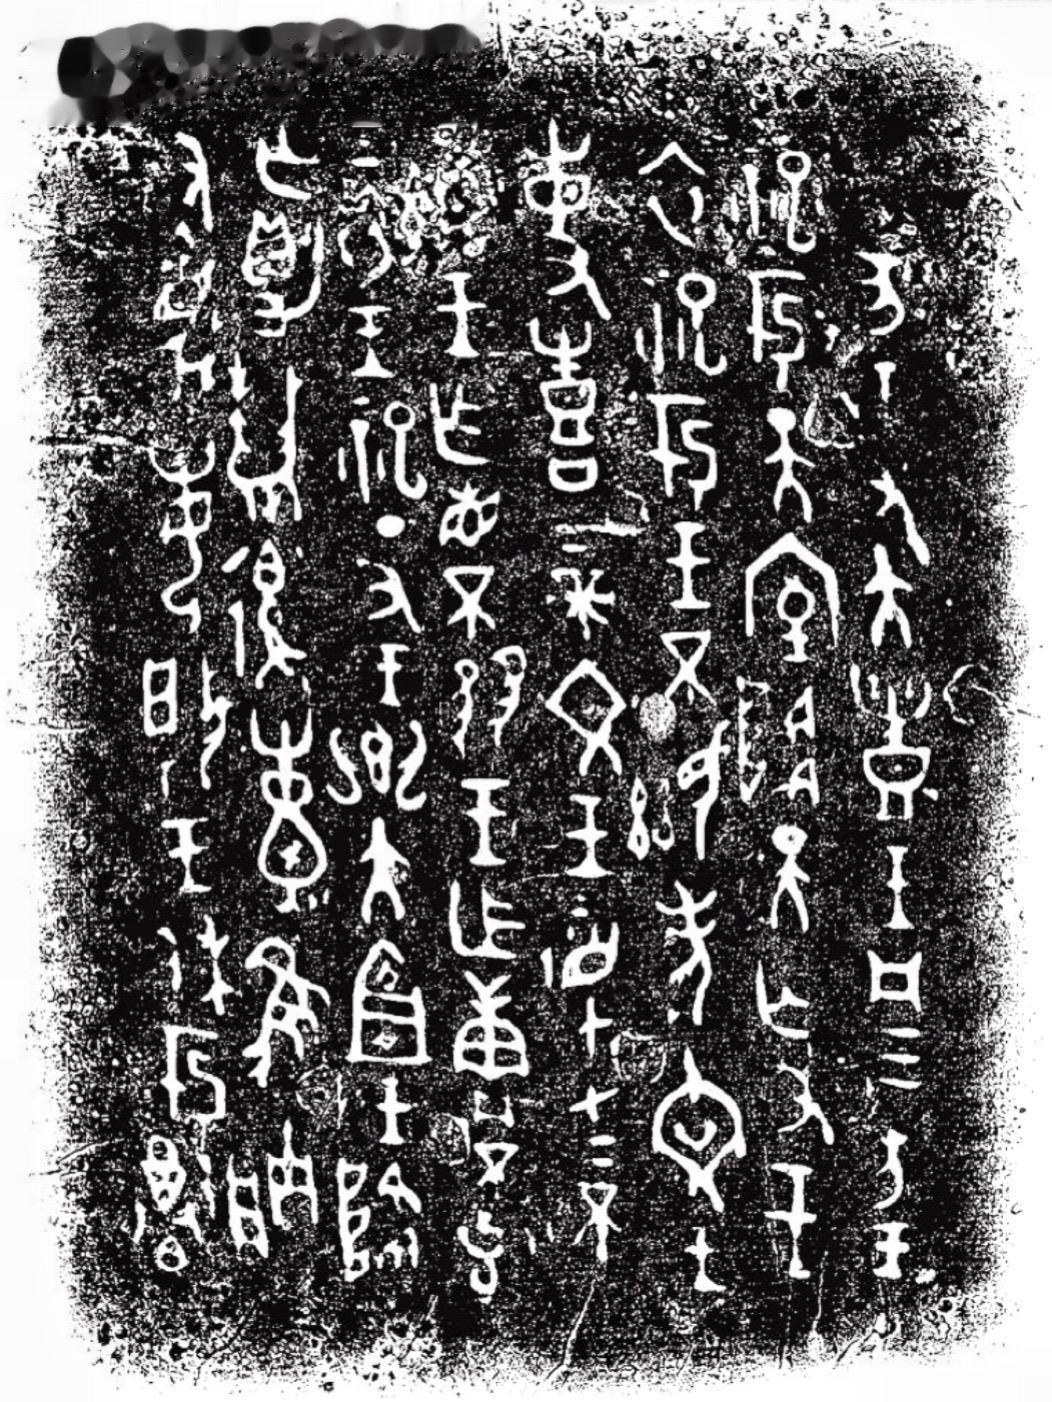 乙亥王又大豊王凡三方王
祀于天室降天亡又王
衣祀于王不顯考文王
事喜上帝文王監才上不
顯王乍省不王乍賡不克
乞衣王祀丁丑王鄉大宜王降
亡爵復隹朕
又每王休于